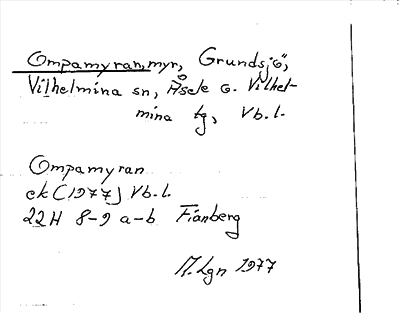 Ompamyran, myr, Grundsjö,
Vilhelmina sn, Åsele o. Vilhel-
mina tg, Vb.l.
Ompamyran
ek (1977) Vb.l.
22H 8-9 a-b Fianberg
M.Lgn 1977